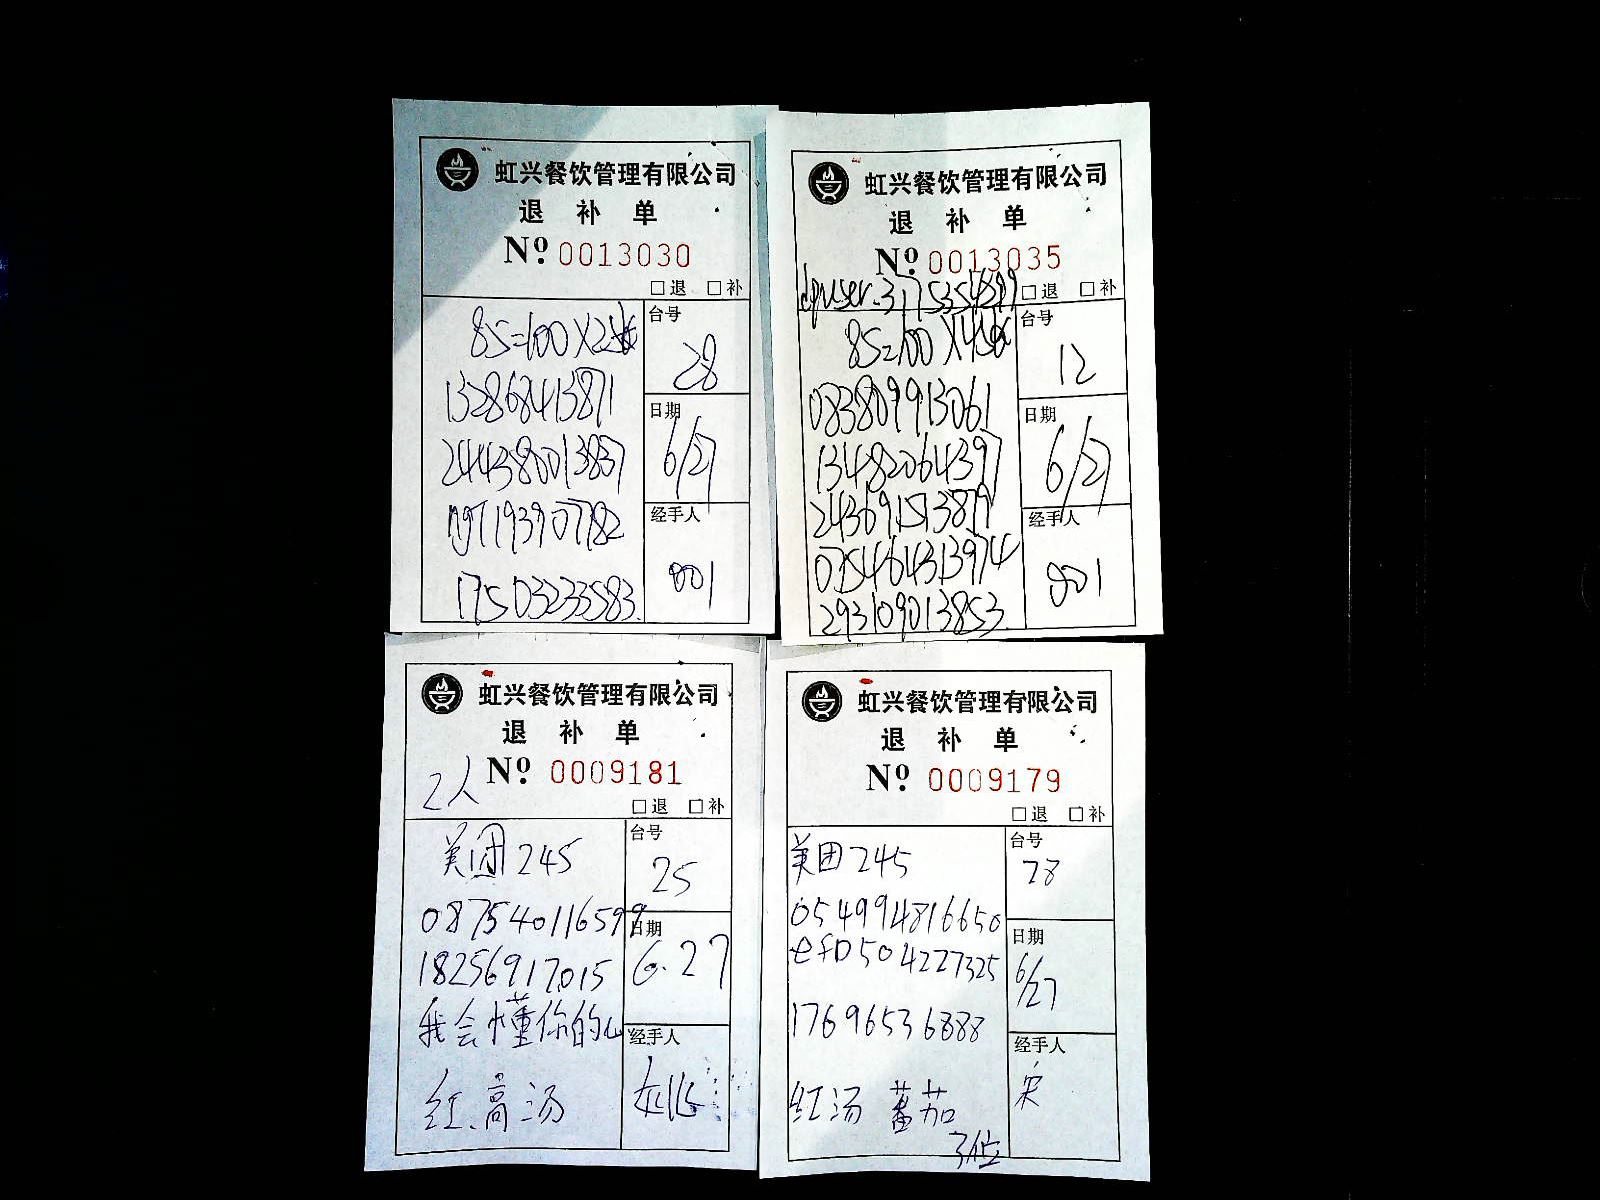 虹兴餐饮管理有限公司
退 补 单
Nº 0013030
□退 □补
85=100×2
台号
28
132868413871
日期
6/27
244380013837
经手人
001
17503233583.
虹兴餐饮管理有限公司
退 补 单
Nº 0013035
□退 □补
dpuser.3175354899
85=100×4
台号
12
083809913061
日期
6/27
13482064397
243691513879
经手人
001
075464313974
293109013853.
虹兴餐饮管理有限公司
退 补 单
2人 Nº 0009181
□退 □补
美团245
台号
25
087540116599
日期
6.27
18256917015
我会懂你的心
经手人
姚
红.高汤
虹兴餐饮管理有限公司
退 补 单
Nº 0009179
□退 □补
美团245
台号
28
054994816650
日期
6/27
efD504227325
17696536888
经手人
宋
红汤 蕃茄
3位